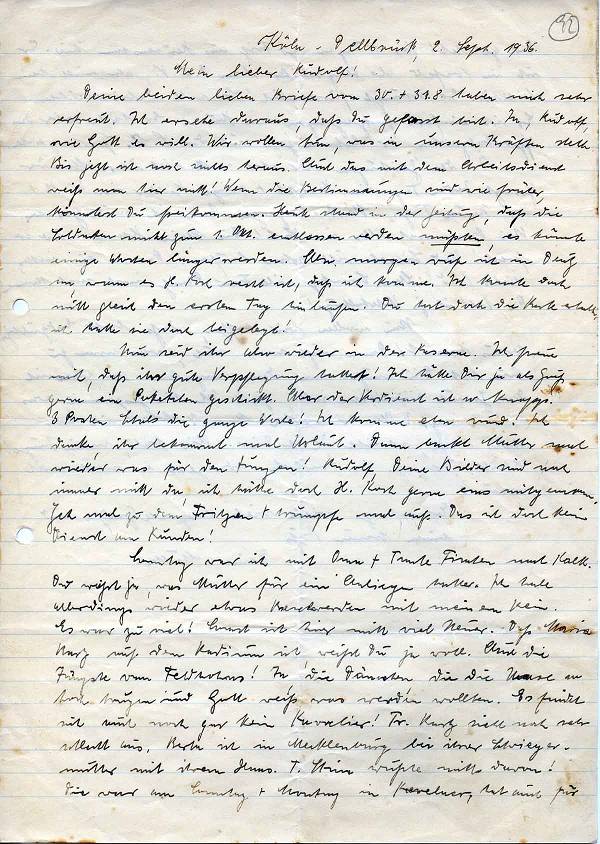 32
Köln - Dellbrück, 2. Sept. 1936.
Mein lieber Rudolf!
Deine beiden lieben Briefe vom 30. + 31.8 haben mich sehr
erfreut. Ich ersehe daraus, daß Du gefasst bist. Ja, Rudolf,
wie Gott es will. Wir wollen tun, was in unseren Kräften steht.
Bis jetzt ist noch nichts heraus. Auch das mit dem Arbeitsdienst
weiß man hier nicht! Wenn die Bestimmungen sind wie früher,
könntest Du freikommen. Heute stand in der Zeitung, daß die
Soldaten nicht zum 1. Okt. entlassen werden müßten, es könnte
einige Wochen länger werden. Also morgen rufe ich in Deutz
an, wann es H. recht ist, daß ich komme. Ich konnte doch
nicht gleich den ersten Tag hinlaufen. Du hast doch die Karte
ich hatte sie doch beigelegt!
Nun seid ihr also wieder in der Kaserne. Ich freue
mich, daß ihr gute Verpflegung hattet! Ich hätte Dir ja als Gruß
gerne ein Paketchen geschickt. Aber der Verdienst ist so knapp.
3 die ganze Woche! Ich komme eben rund! Ich
denke ihr bekommt mal Urlaub. Dann backt Mutter mal
wieder was für den Jungen! Rudolf, Deine Bilder sind noch
immer nicht da, ich hätte doch H. gerne eins mitgenommen,
Geh mal zu dem Fritzen + trumpfe mal auf. Das ist doch kein
Dienst am Kunden!
Sonntag war ich mit Oma + Tante nach Kalk.
Du weißt ja, was Mutter für ein Anliegen hatte. Ich habe
allerdings wieder etwas Beschwerden mit meinem Bein.
Es war zu viel! Sonst ist hier nicht viel Neues. Daß Maria
auf dem ist, weißt Du ja wohl. Auch die
Jüngste vom Feldhaus! Ja die Damen die die Nase so
hoch trugen und Gott weiß was werden wollten. Es findet
sich auch noch gar kein Kavalier! Fr. sieht noch sehr
schlecht aus, ist in Mecklenburg bei ihrer Schwieger-
mutter mit ihrem Hans. T. wußte nichts davon!
Die war am Sonntag + Montag in Kevelaer, hat auch für